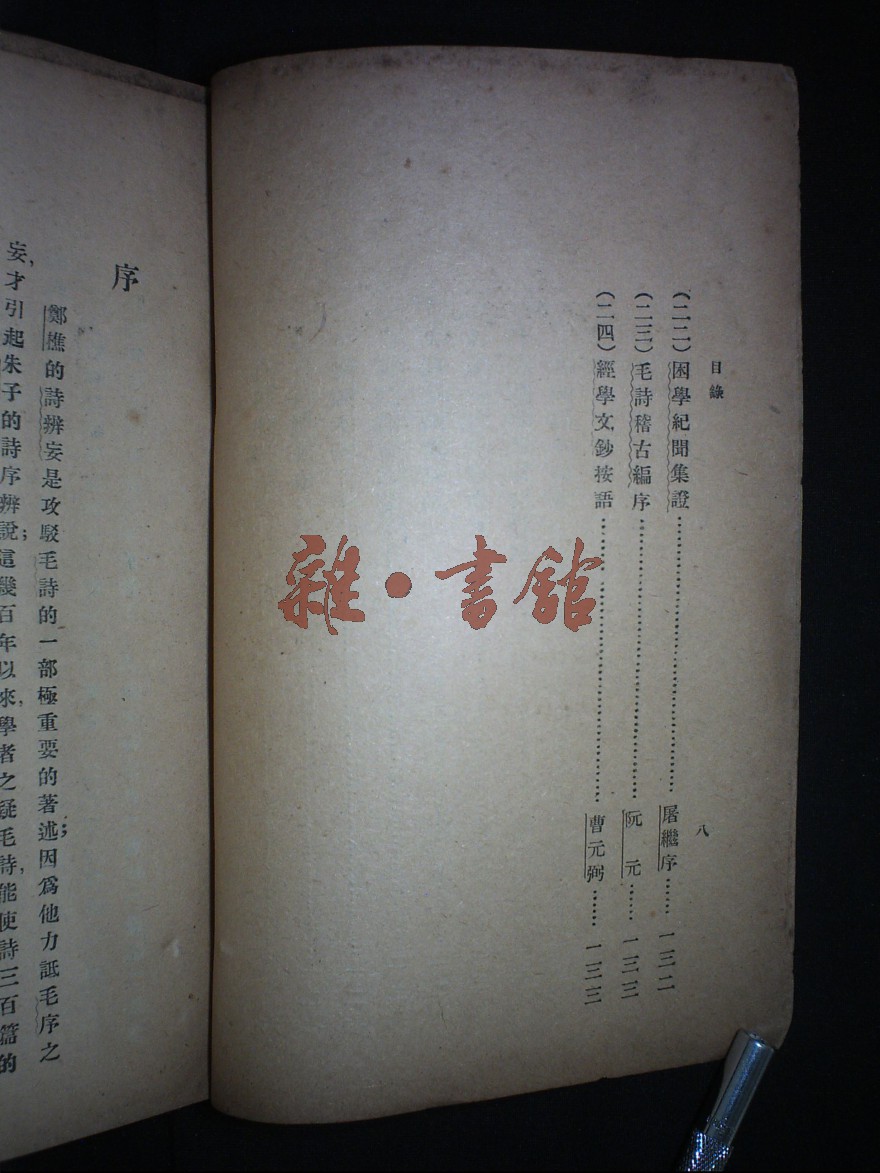 目錄
八
（二二）困學紀聞集證……屠繼序……一三二
（二三）毛詩稽古編序……阮　元……一三三
（二四）經學文鈔按語……曹元弼……一三三
序
鄭樵的詩辨妄是攻駁毛詩的一部極重要的著述；因爲他力詆毛序之
妄，才引起朱子的詩序辨說；這幾百年以來，學者之疑毛詩，能使詩三百篇的
雜·書館